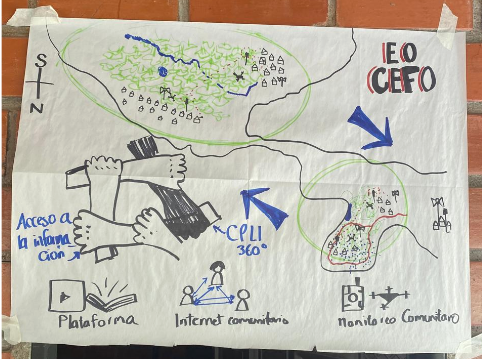 S
N
EO
CEFO
Acceso a
la informa
ción
CPLI
360°
Plataforma
Internet comunitario
Monitoreo Comunitario